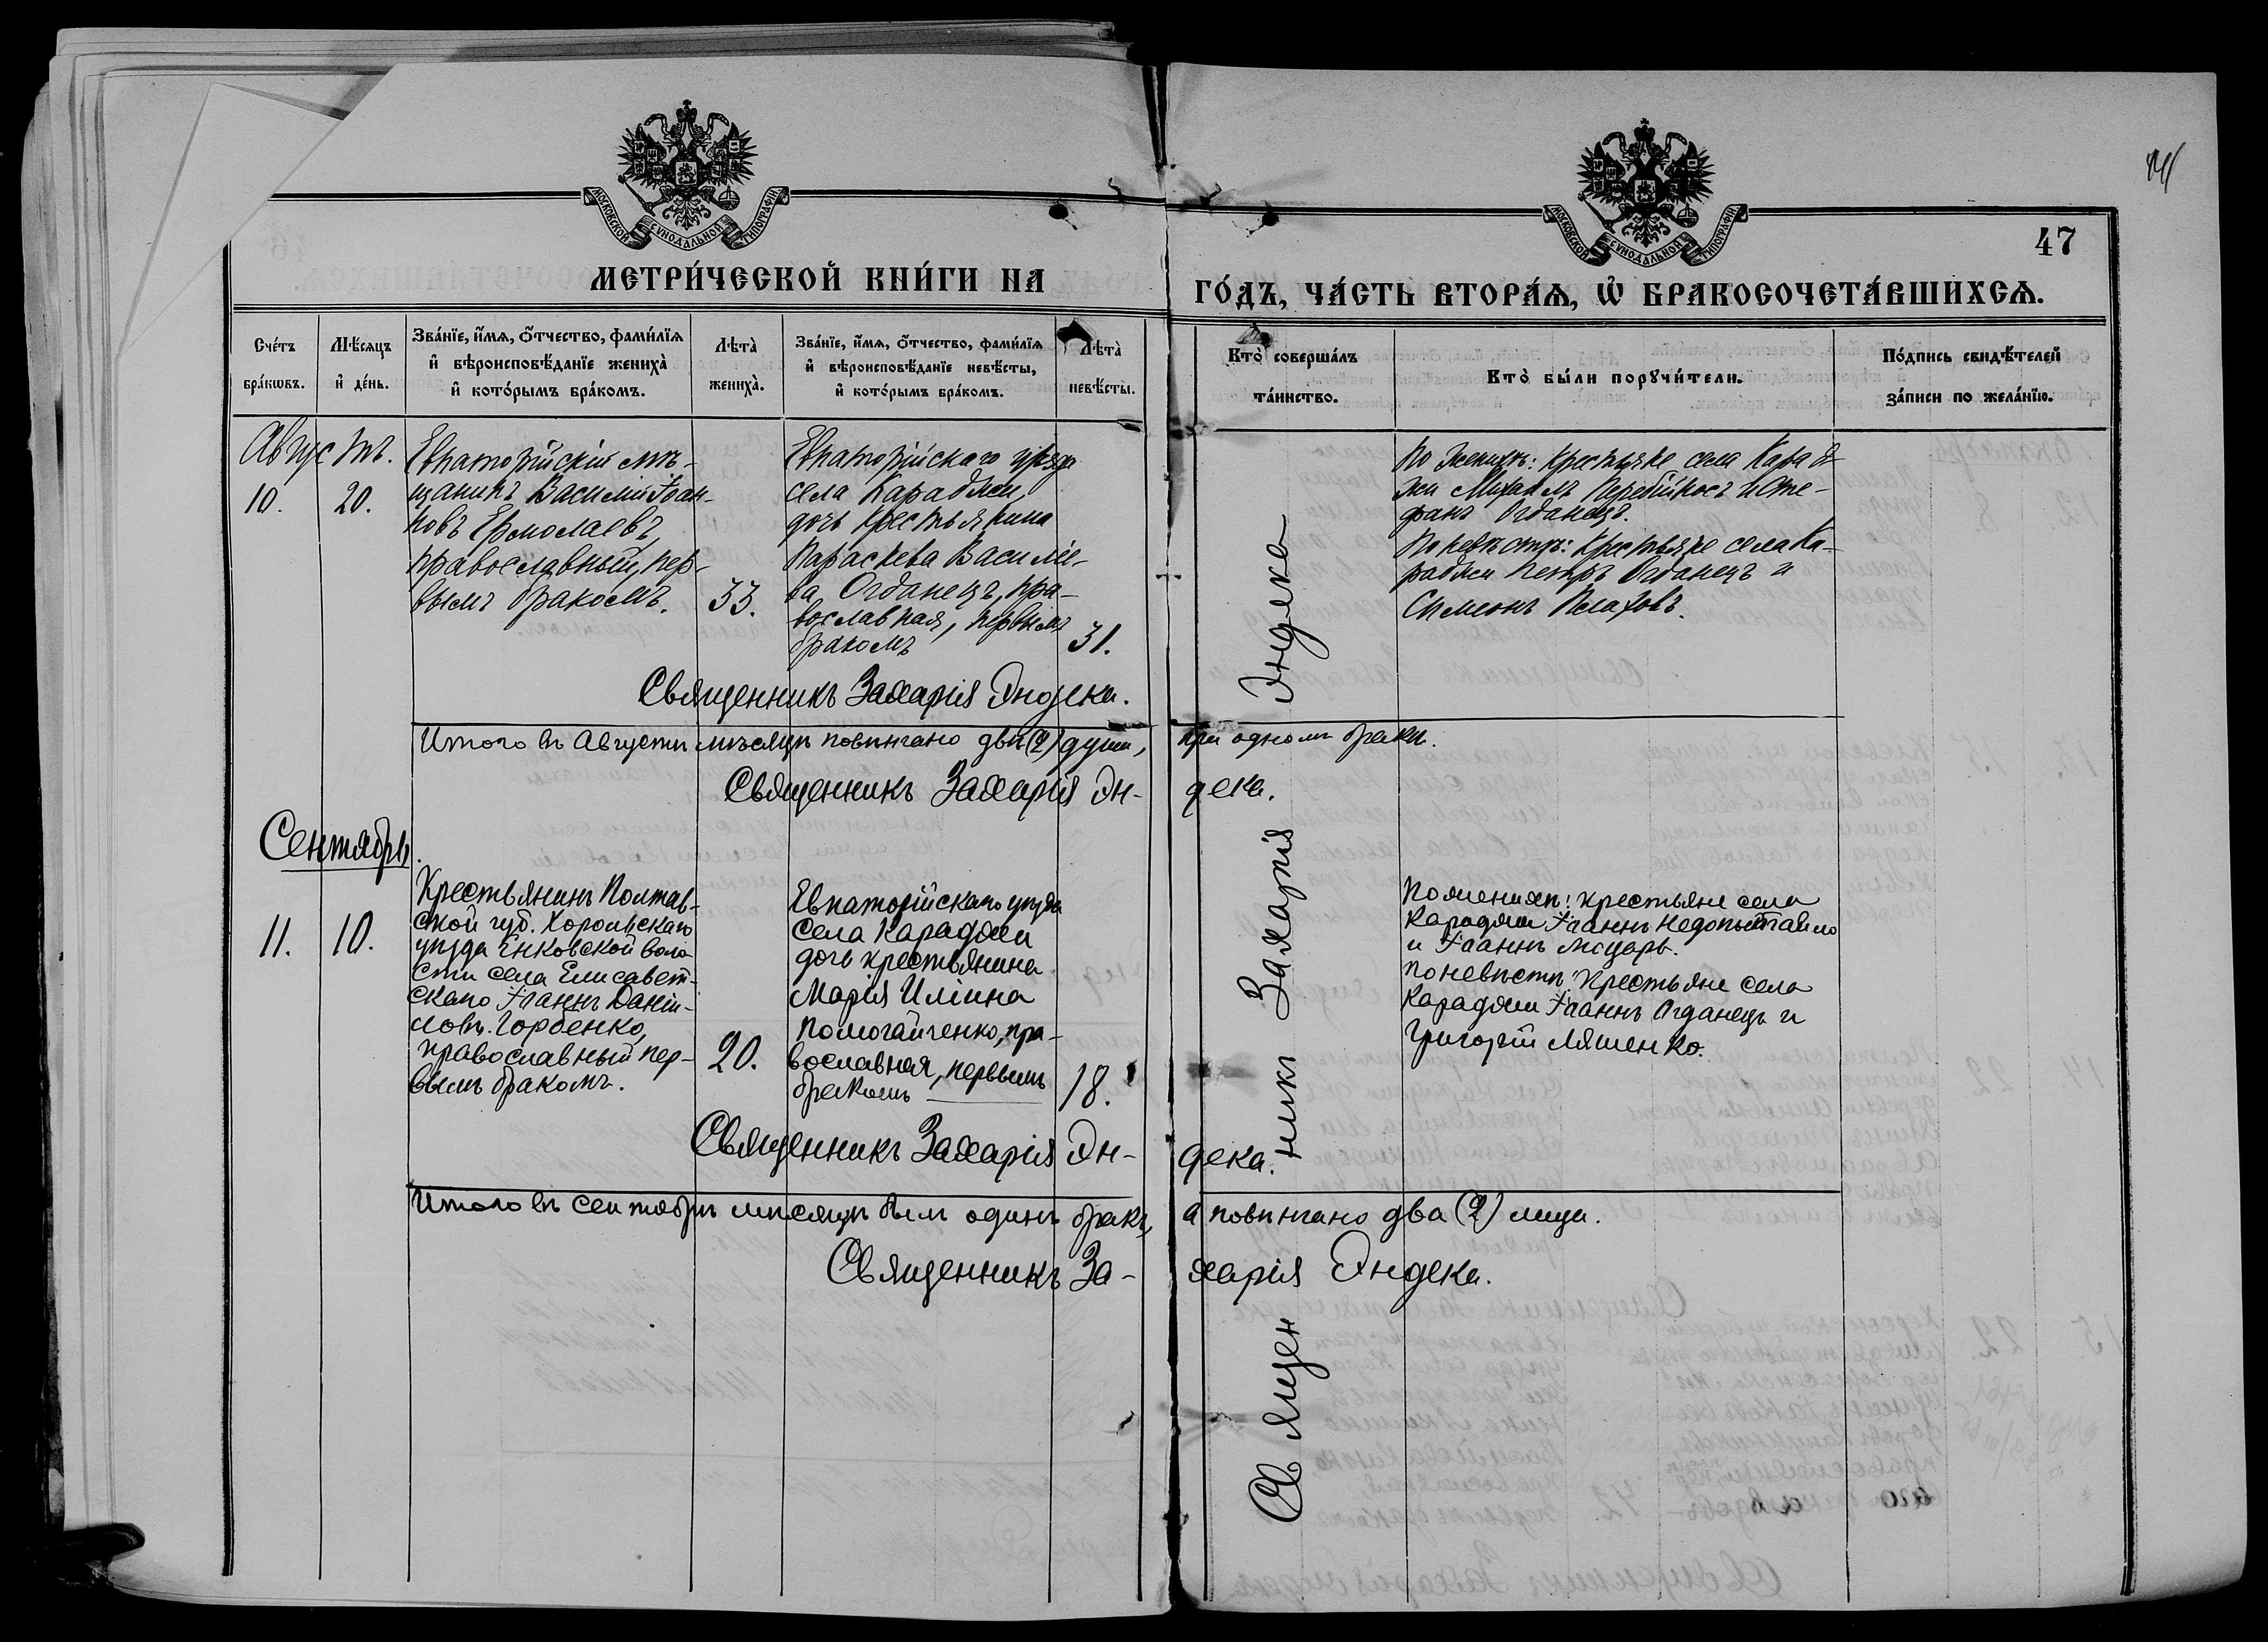 МОСКОВСКОЙ СѴНОДАЛЬНОЙ ТИПОГРАФІИ
МОСКОВСКОЙ СѴНОДАЛЬНОЙ ТИПОГРАФІИ
47
МЕТРИ́ЧЕСКОЙ КНИ́ГИ НА
ГО́ДЪ, ЧА́СТЬ ВТОРА́Ѧ, Ѽ БРАКОСОЧЕТА́ВШИХСѦ.
Сче́тъ бра́кѡвъ.
Мѣ́сяцъ и де́нь.
Зва́нїе, и́мѧ, ѻ́тчество, фами́лїѧ
и вѣроисповѣ́данїе жениха̀
и кото́рымъ бра́комъ.
Лѣта̀ жениха̀.
Зва́нїе, и́мѧ, ѻ́тчество, фами́лїѧ
и вѣроисповѣ́данїе невѣ́сты,
и кото́рымъ бра́комъ.
Лѣта̀ невѣ́сты.
Кто̀ соверша́лъ
та́инство.
Кто̀ бы́ли порꙋчи́тели.
По́дпись свидѣ́телей
за́писи по жела́нїю.
Августъ.
10.
20.
Евпаторійскій мѣ-
щанинъ Василій Іоан-
новъ Ермолаевъ,
православный, пер-
вымъ бракомъ.
33.
Евпаторійскаго уѣзда
села Караджи,
дочь крестьянина
Параскева Василіе-
ва Огданецъ, пра-
вославная, первымъ
бракомъ
31.
По женихѣ: крестьяне села Карад-
жи Михаилъ Перебійносъ и Сте-
фанъ Огданецъ.
По невѣстѣ: Крестьяне села Ка-
раджи Петръ Огданецъ и
Симеонъ Пелахъ.
Священникъ Захарія Эндека.
Итого въ Августѣ мѣсяцѣ повѣнчано двѣ (2) души, при одномъ бракѣ.
Священникъ Захарія Эн- дека.
Сентябрь.
11.
10.
Крестьянинъ Полтав-
ской губ. Хорольскаго
уѣзда Енковской воло
сти села Елисавет-
скаго Іоаннъ Даніи-
ловъ Горбенко,
православный пер-
вымъ бракомъ.
20.
Евпаторійскаго уѣзда
села Караджи
дочь крестьянина
Марія Иліина
Помогайченко, пра-
вославная, первымъ
бракомъ
18.
По женихѣ: крестьяне села
Караджи Іоаннъ Недопытайло
и Іоаннъ Мсцарь.
По невѣстѣ: Крестьяне села
Караджи Іоаннъ Огданецъ и
Григорій Ляшенко.
Священникъ Захарія Эн- дека.
Итого въ сентябрѣ мѣсяцѣ былъ одинъ бракъ, а повѣнчано два (2) лица.
Священникъ За- харія Эндека.
Священникъ Захарія Эндека